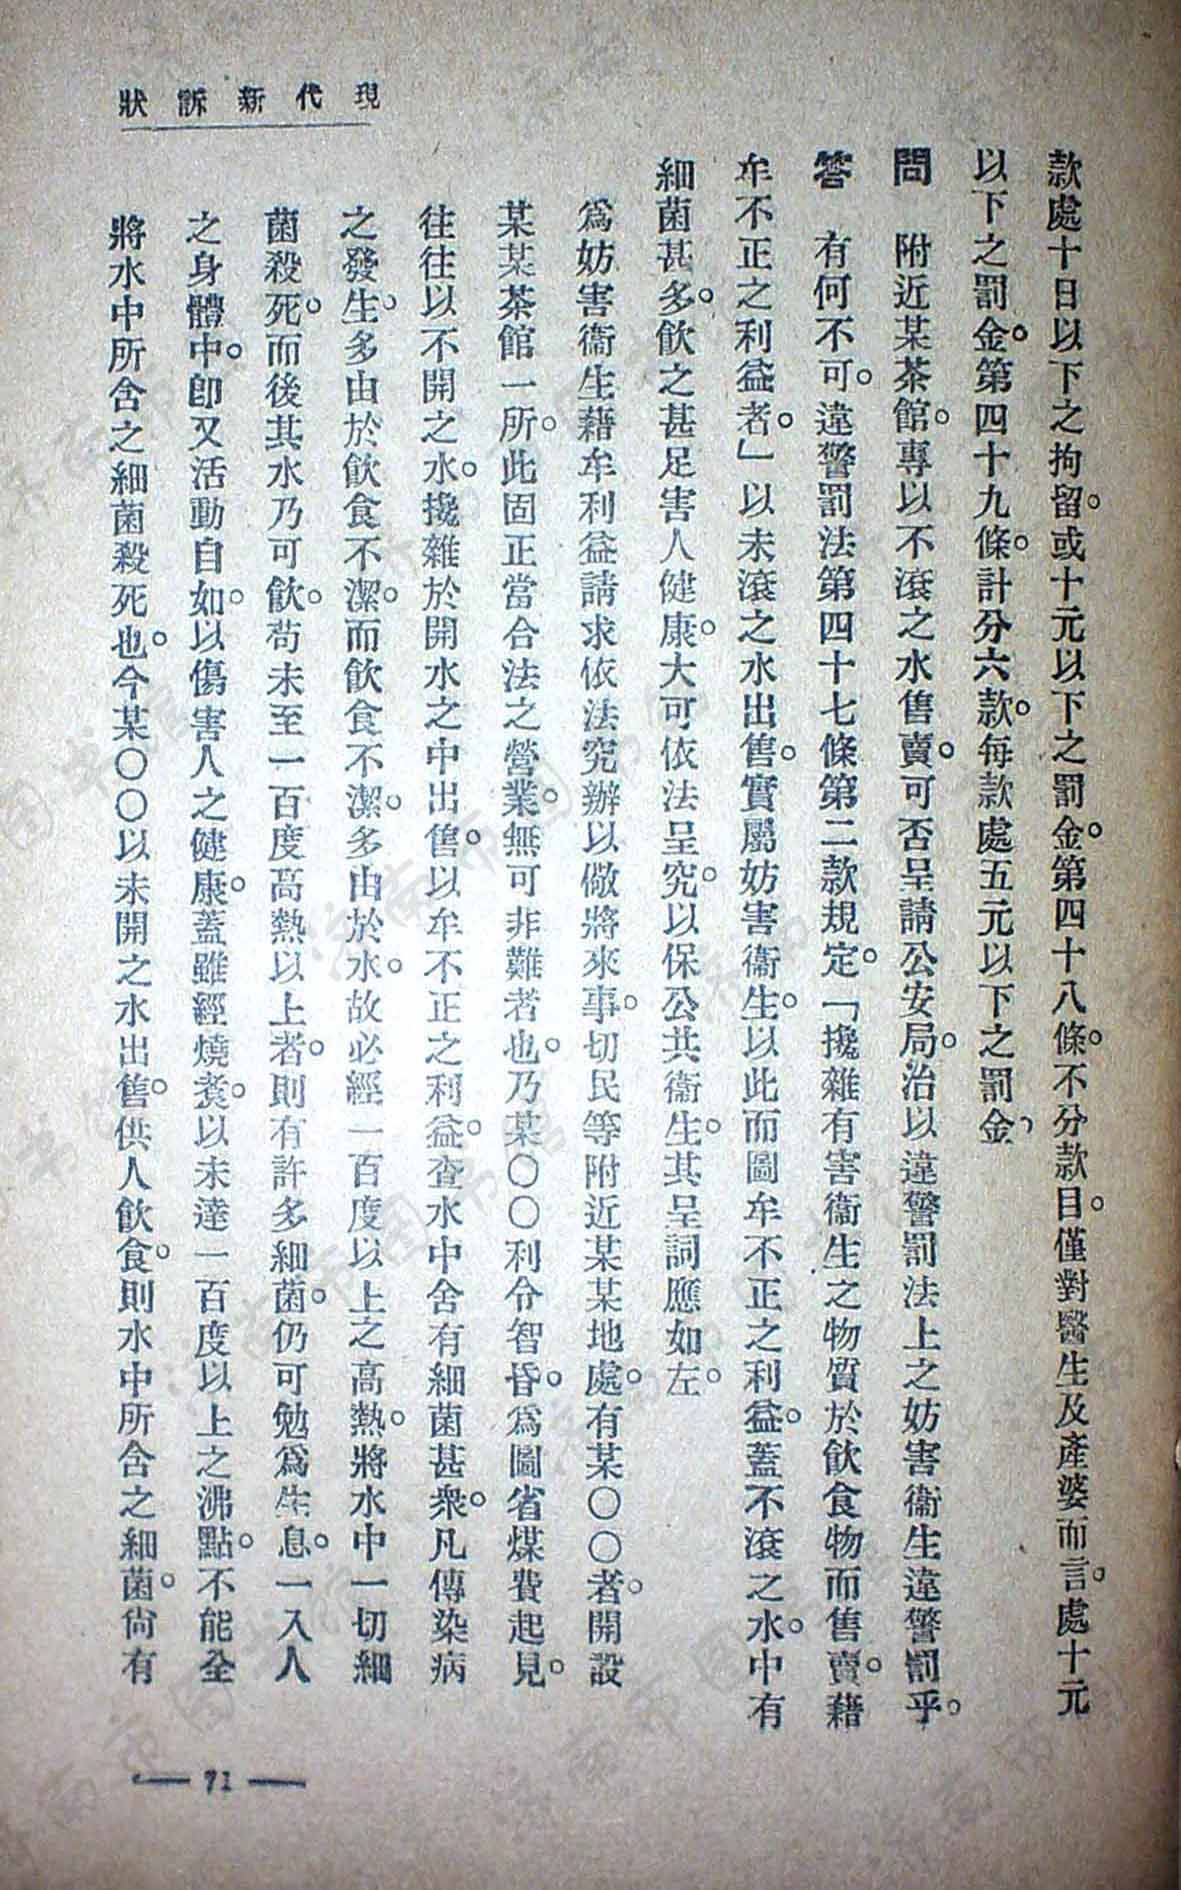 現代新訴狀
款處十日以下之拘留。或十元以下之罰金。第四十八條。不分款目。僅對醫生及產婆而言。處十元
以下之罰金。第四十九條。計分六款。每款處五元以下之罰金、
問　附近某茶館。專以不滾之水售賣。可否呈請公安局。治以違警罰法上之妨害衞生違警罰乎。
答　有何不可。違警罰法第四十七條第二款規定。「攙雜有害衞生之物質於飲食物而售賣。藉
牟不正之利益者。」以未滾之水出售。實屬妨害衞生。以此而圖牟不正之利益。蓋不滾之水。中有
細菌甚多。飲之甚足害人健康。大可依法呈究。以保公共衞生。其呈詞應如左。
爲妨害衞生藉牟利益請求依法究辦以儆將來事。切民等附近某某地處。有某〇〇者。開設
某某茶館一所。此固正當合法之營業。無可非難者也。乃某〇〇利令智昏。爲圖省煤費起見。
往往以不開之水。攙雜於開水之中出售。以牟不正之利益。查水中含有細菌甚衆。凡傳染病
之發生。多由於飲食不潔。而飲食不潔。多由於水。故必經一百度以上之高熱。將水中一切細
菌殺死。而後其水乃可飲。苟未至一百度高熱以上者。則有許多細菌。仍可勉爲生息。一入人
之身體中。卽又活動自如。以傷害人之健康。蓋雖經燒煑。以未達一百度以上之沸點。不能全
將水中所含之細菌殺死也。今某〇〇以未開之水出售。供人飲食。則水中所含之細菌。尙有
— 71 —
濟南市图书馆